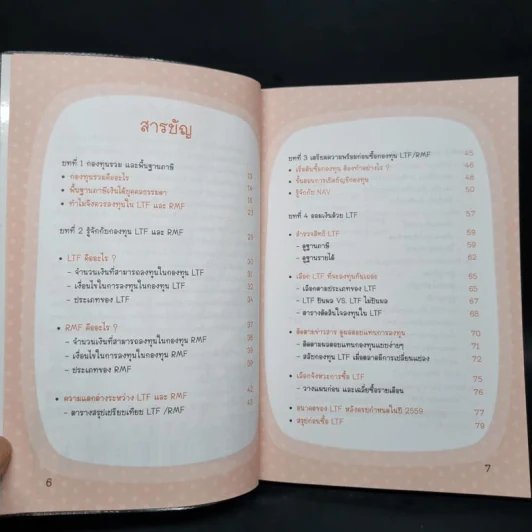 สารบัญ
บทที่ 1 กองทุนรวม และพื้นฐานภาษี
• กองทุนรวมคืออะไร 12
• พื้นฐานภาษีเงินได้บุคคลธรรมดา
• ทำไมจึงควรลงทุนใน LTF และ RMF 23
บทที่ 2 รู้จักกับกองทุน LTF และ RMF
• LTF คืออะไร ?
- จำนวนเงินที่สามารถลงทุนในกองทุน LTF
- เงื่อนไขในการลงทุนในกองทุน LTF
- ประเภทของ LTF 34
• RMF คืออะไร ? 37
- จำนวนเงินที่สามารถลงทุนในกองทุน RMF 38
- เงื่อนไขในการลงทุนในกองทุน RMF
- ประเภทของ RMF
• ความแตกต่างระหว่าง LTF และ RMF 42
- ตารางสรุปเปรียบเทียบ LTF /RMF 43
6
บทที่ 3 เตรียมความพร้อมก่อนซื้อกองทุน LTF/RMF 45
• เริ่มต้นซื้อกองทุน ต้องทำอย่างไร ? 46
• ขั้นตอนการเปิดบัญชีกองทุน 48
• รู้จักกับ NAV 50
บทที่ 4 ออมเงินด้วย LTF 57
• สำรวจสิทธิ LTF 59
- ดูฐานภาษี 59
- ดูฐานรายได้ 62
• เลือก LTF ที่จะลงทุนกันเถอะ 65
- เลือกตามประเภทของ LTF 65
- LTF ปันผล VS. LTF ไม่ปันผล 67
- ตารางตัดสินใจลงทุนใน LTF 68
• ติดตามข่าวสาร ดูผลตอบแทนการลงทุน 70
- ติดตามผลตอบแทนกองทุนแบบง่ายๆ 71
- สลับกองทุน LTF เมื่อตลาดมีการเปลี่ยนแปลง 72
• เลือกจังหวะการซื้อ LTF 75
- วางแผนก่อน และเฉลี่ยซื้อรายเดือน 76
• อนาคตของ LTF หลังครบกำหนดในปี 2559 77
• สรุปก่อนซื้อ LTF 79
7